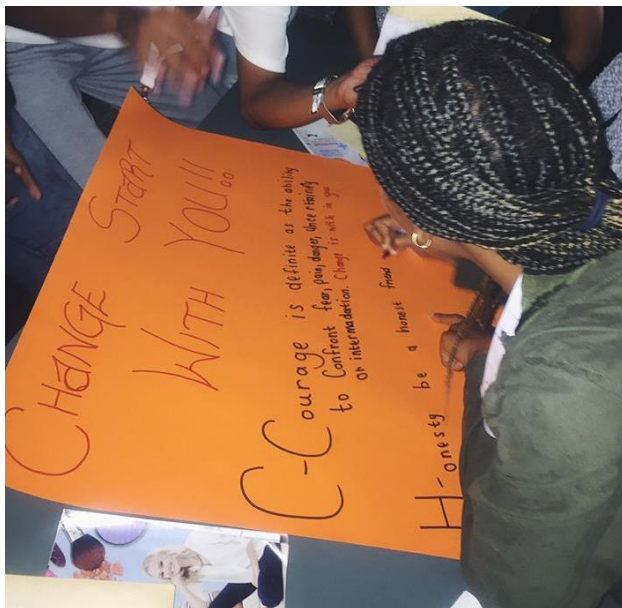 CHANGE START
WITH YOU!!
C-Courage is definite as the ability
to Confront fear, pain, danger, Uncertainty
or intermadation. Change is with in you
H-onesty be a honest friend